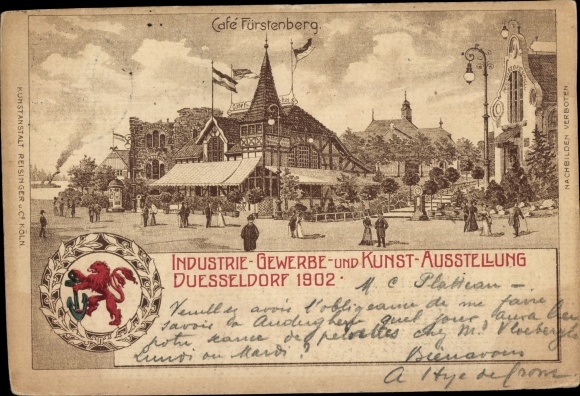 Café Fürstenberg.
KUNSTANSTALT REISINGER u. Co KÖLN.
NACHBILDEN VERBOTEN
INDUSTRIE-GEWERBE-UND KUNST-AUSSTELLUNG
DUESSELDORF 1902.
M. C. Platteau —
Veuillez avoir l'obligeance de me faire
savoir la quel jour aura lieu
votre séance de chez Mr
Lundi ou Mardi?
Bien à vous
A